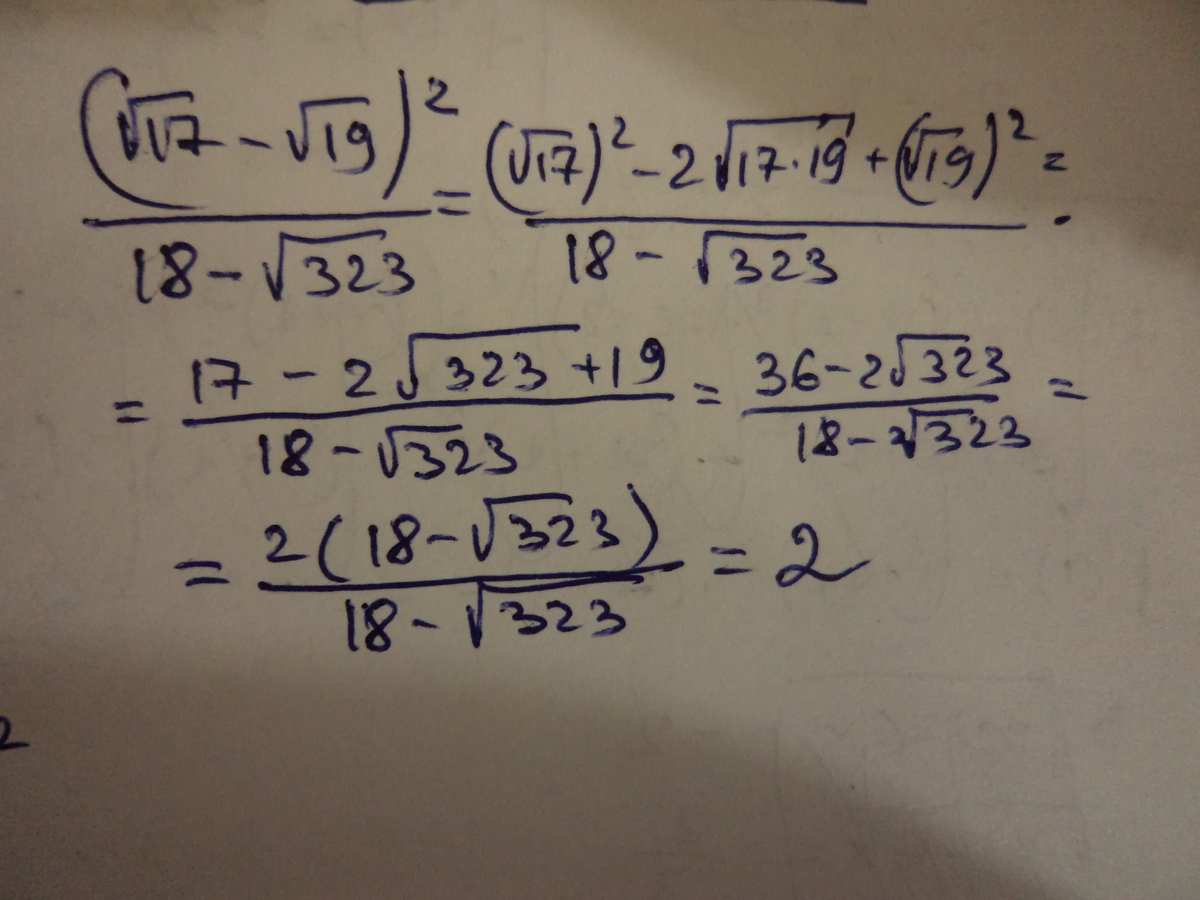 (√17 - √19)² / (18 - √323) = ((√17)² - 2√(17·19) + (√19)²) / (18 - √323) =
= (17 - 2√323 + 19) / (18 - √323) = (36 - 2√323) / (18 - √323) =
= 2(18 - √323) / (18 - √323) = 2
2